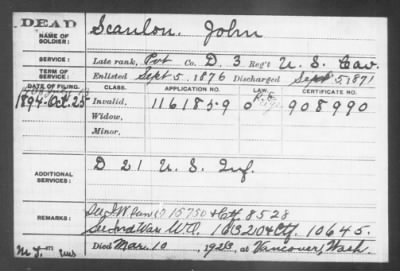 DEAD
NAME OF SOLDIER: Scanlon. John
SERVICE: Late rank, Pvt Co. D. 3 Reg't U. S. Cav.
TERM OF SERVICE: Enlisted Sept 5. 1876 Discharged Sept 5, 1871
DATE OF FILING. CLASS. APPLICATION NO. LAW. CERTIFICATE NO.
1894-Oct. 25 Invalid. 1161859 908990
Widow.
Minor.
ADDITIONAL SERVICES: D 21 U. S. Inf.
REMARKS: 15750 + Ctf. 8528
See Ind War W.O. 16320 + Ctf. 10645.
Died Mar. 10, 1923 at Vancouver, Wash.